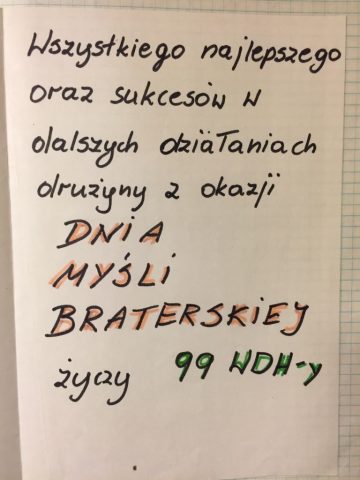 Wszystkiego najlepszego
oraz sukcesów w
dalszych działaniach
drużyny z okazji
DNiA
MYŚLi
BRATERSKiEJ
życzy 99 WDH-y